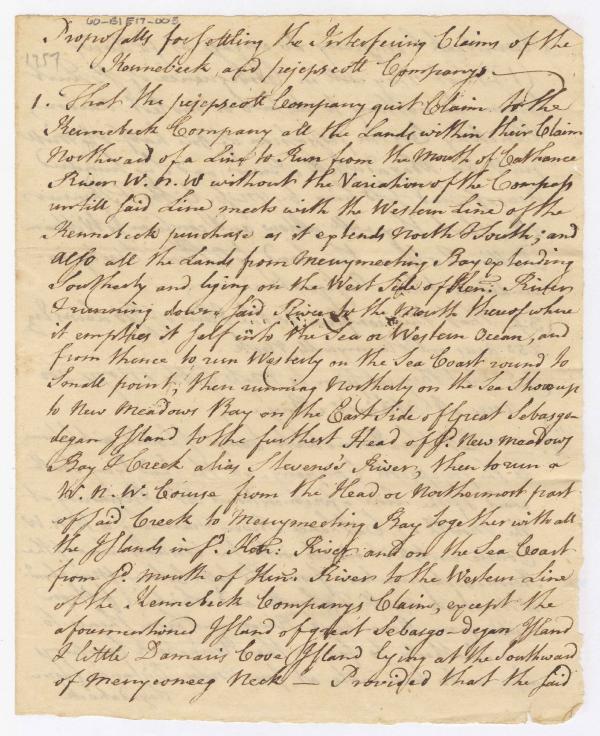 60-B1F17-003
Proposalls for settling the Interfering Claims of the
1757
Kennebeck and pejepscott Companys
1. That the pejepscott Company quit Claim to the
Kennebeck Company all the Lands within their Claim
Northward of a Line to Run from the Mouth of Cathance
River W. N. W without the Variation of the Compass
untill said Line meets with the Western Line of the
Kennebeck purchase as it extends North & South; and
also all the Lands from Merrymeeting Bay extending
Southerly and lying on the West Side of Ken: River
& running down said River to the Mouth thereof where
it empties it self into the Sea or Western Ocean, and
from thence to run Westerly on the Sea Coast round to
Small point, then running Northerly on the Sea Shore up
to New Meadows Bay on the East Side of Great Sebasgo-
degan Island to the furthest Head of sd. New meadows
Bay & Creek alias Stevens's River, then to run a
W. N. W. Course from the Head or Northermost part
of said Creek to Merrymeeting Bay together with all
the Islands in sd. Ken: River and on the Sea Coast
from sd. mouth of Ken: River to the Western Line
of the Kennebeck Companys Claim, except the
aforementioned Island of great Sebasgo-degan Island
& little Damaris Cove Island lying at the Southward
of Merryconeeg Neck — Provided that the said